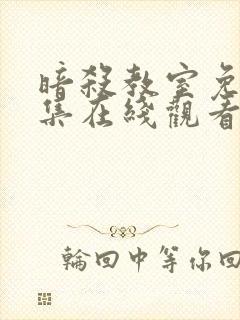 暗殺教室免
集在綫觀看
輪回中等你回